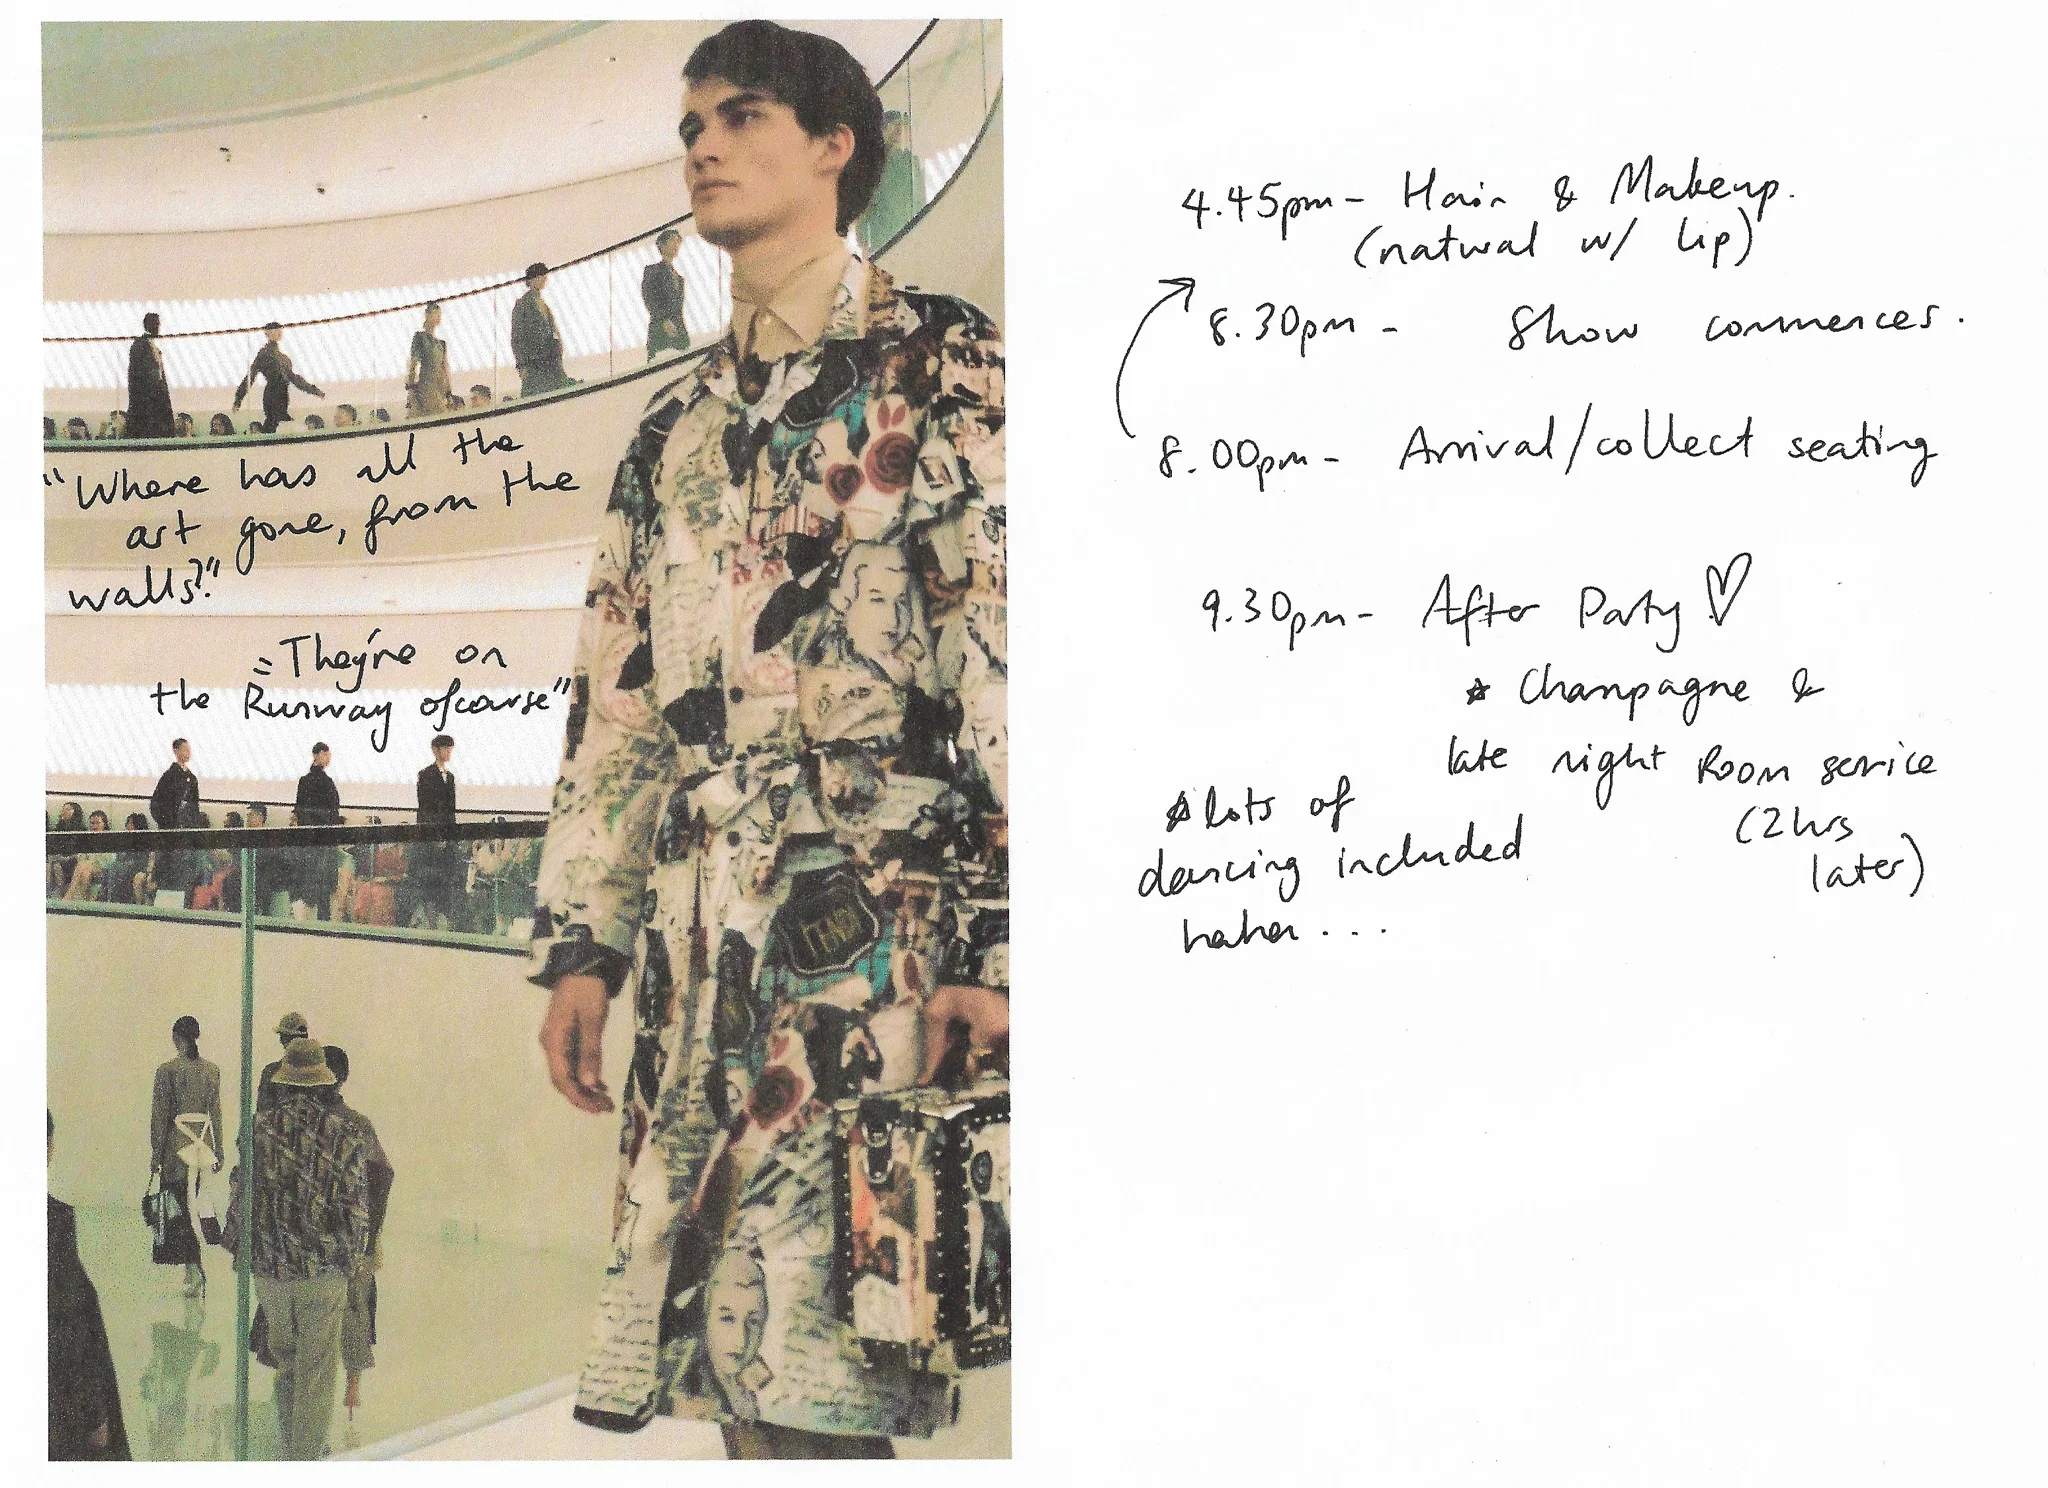 "Where has all the
art gone, from the
walls?"
"They're on
the Runway ofcourse"
4.45pm - Hair & Makeup.
(natural w/ lip)
8.30pm - Show commences.
8.00pm - Arrival/collect seating
9.30pm - After Party ♡
* Champagne &
late night Room service
(2hrs
later)
* lots of
dancing included
haha...